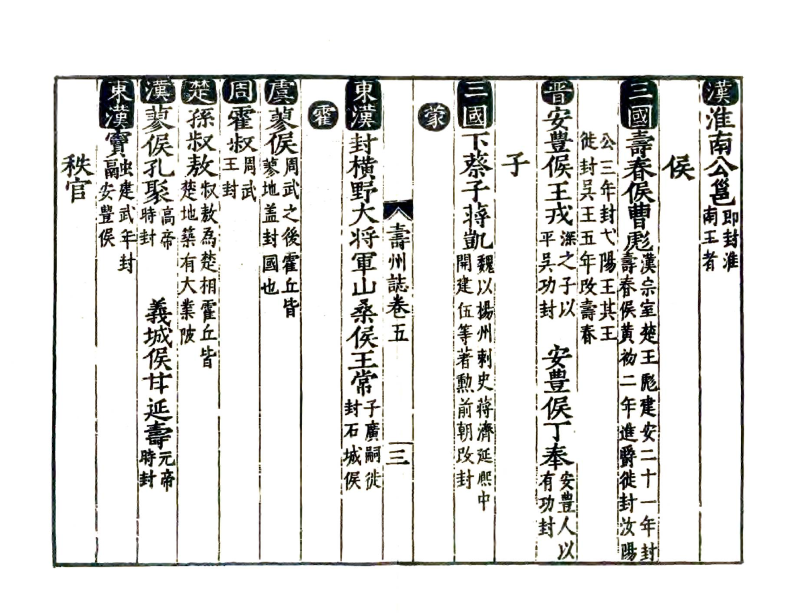 漢淮南公邕即封淮南王者
侯
三國壽春侯曹彪漢宗室楚王彪建安二十一年封壽春侯黃初二年進爵徙封汝陽
公三年封弋陽王其王徙封吳王五年改壽春
晋安豊侯王戎渾之子以平吳功封 安豊侯丁奉安豊人以有功封
子
三國下蔡子蒋凱魏以揚州刺史蒋濟延熙中開建伍等著勲前朝改封
蒙
壽州誌卷五 三
東漢封橫野大将軍山桑侯王常子廣嗣徙封石城侯
霍
虞蓼侯周武之後霍丘皆蓼地盖封國也
周霍叔周武王封
楚孫叔敖叔敖為楚相霍丘皆楚地築有大業陂
漢蓼侯孔聚高帝時封 義城侯甘延壽元帝時封
東漢竇融建武年封安豊侯
秩官